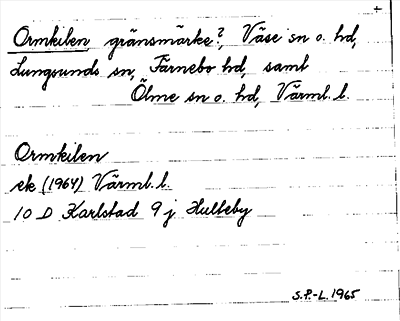 +
Ormkilen gränsmärke?, Väse sn o. hd,
Lungsunds sn, Färnebo hd, samt
Ölme sn o. hd, Värml. l.
Ormkilen
ek (1964) Värml. l.
10 D Karlstad 9 j Hulteby
S.P.-L. 1965